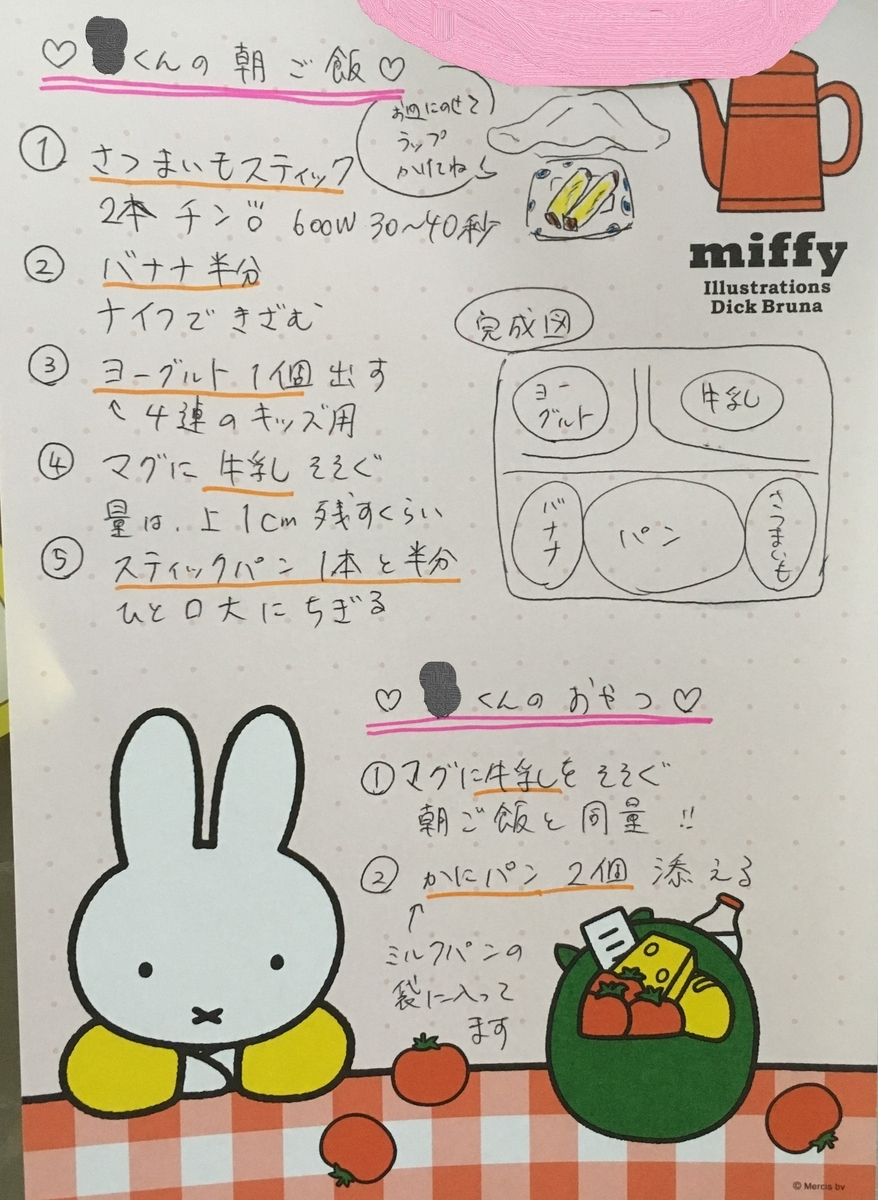 ♡ くんの朝ご飯♡
お皿にのせて
ラップ
かけてね
① さつまいもスティック
2本 チン!! 600W 30〜40秒
② バナナ半分
ナイフできざむ
③ ヨーグルト1個出す
↑ 4連のキッズ用
④ マグに牛乳そそぐ
量は、上1cm残すくらい
⑤ スティックパン 1本と半分
ひと口大にちぎる
miffy
Illustrations
Dick Bruna
完成図
ヨー
グルト
牛乳
バナナ
パン
さつまいも
♡ くんのおやつ♡
①マグに牛乳をそそぐ
朝ご飯と同量!!
② かにパン 2個 添える
↑
ミルクパンの
袋に入って
ます
© Mercis bv